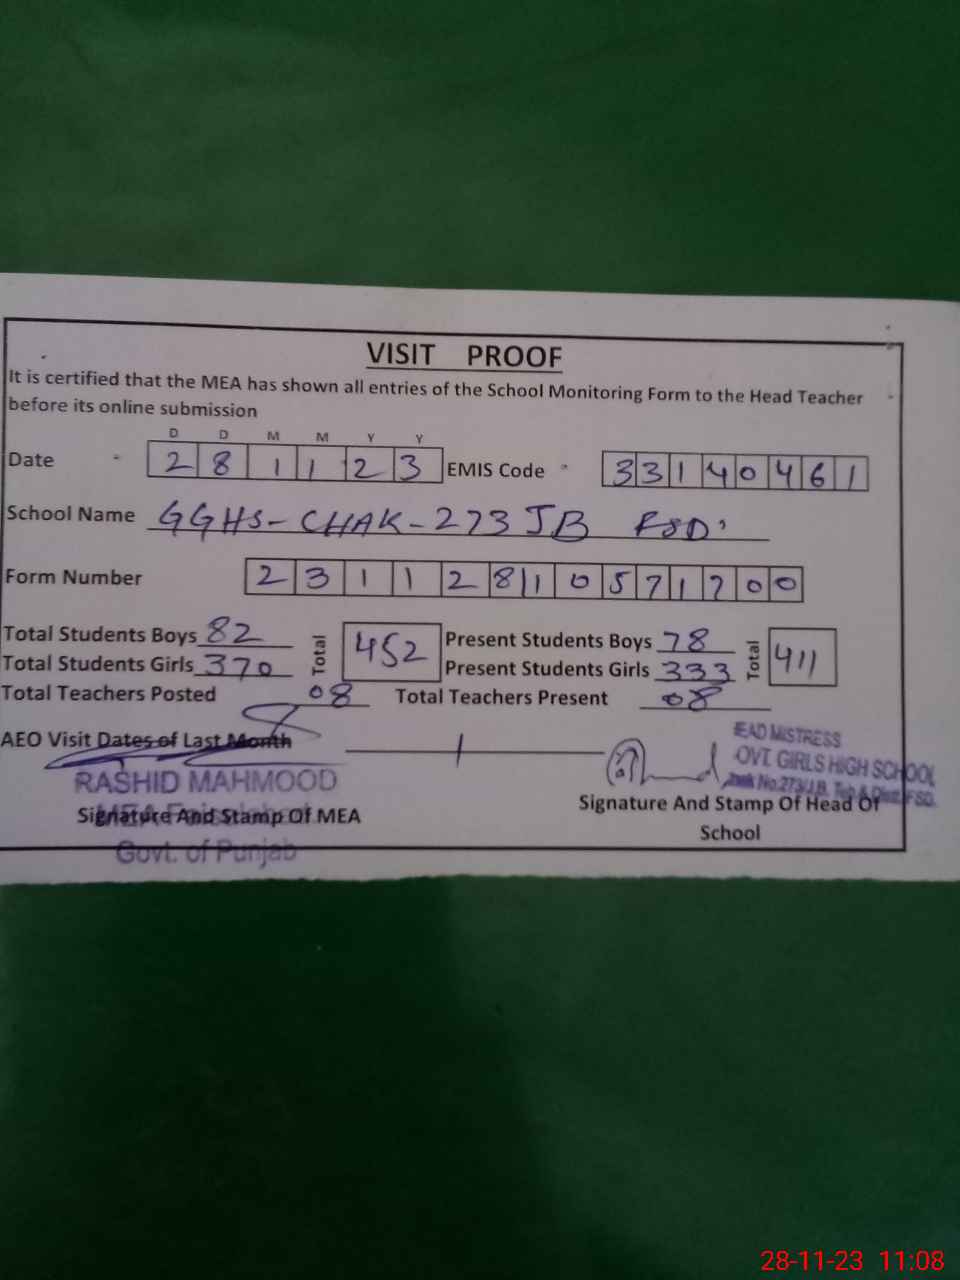 VISIT PROOF
It is certified that the MEA has shown all entries of the School Monitoring Form to the Head Teacher
before its online submission
D D M M Y Y
Date 2 8 1 1 2 3 EMIS Code 3 3 1 4 0 4 6 1
School Name GGHS-CHAK-273 JB FSD
Form Number 2 3 1 1 2 8 1 0 5 7 1 7 0 0
Total Students Boys 82 Total 452 Present Students Boys 78 Total 411
Total Students Girls 370 Present Students Girls 333
Total Teachers Posted 08 Total Teachers Present 08
AEO Visit Dates of Last Month
HEAD MISTRESS
GOVT. GIRLS HIGH SCHOOL
No.273/J.B. Teh & Distt. FSD.
RASHID MAHMOOD
MEA Faisalabad
Govt. of Punjab
Signature And Stamp Of MEA
Signature And Stamp Of Head Of
School
28-11-23 11:08